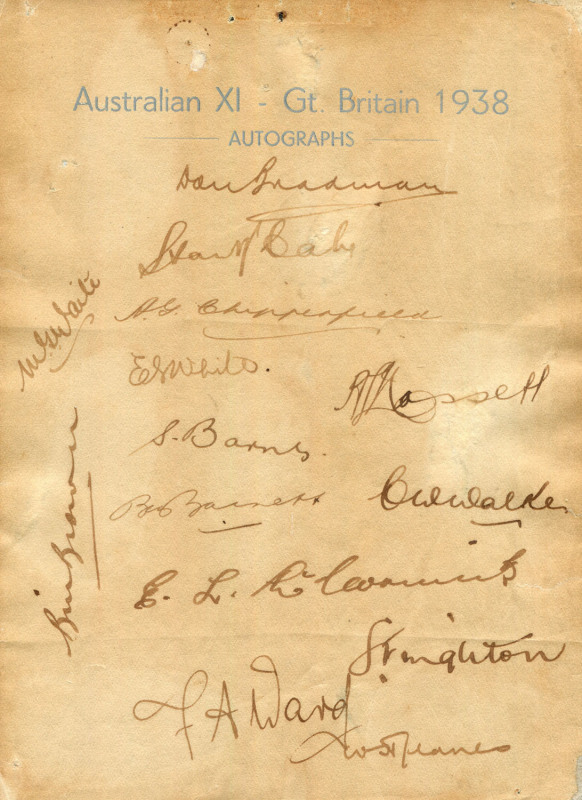 Australian XI - Gt. Britain 1938
AUTOGRAPHS
Don Bradman
Stan McCabe
A.G. Chipperfield
M.G. Waite
E.S. White.
S. Barnes.
B. Barnett
C W Walker
Bill Brown
E. L. McCormick
F A Ward